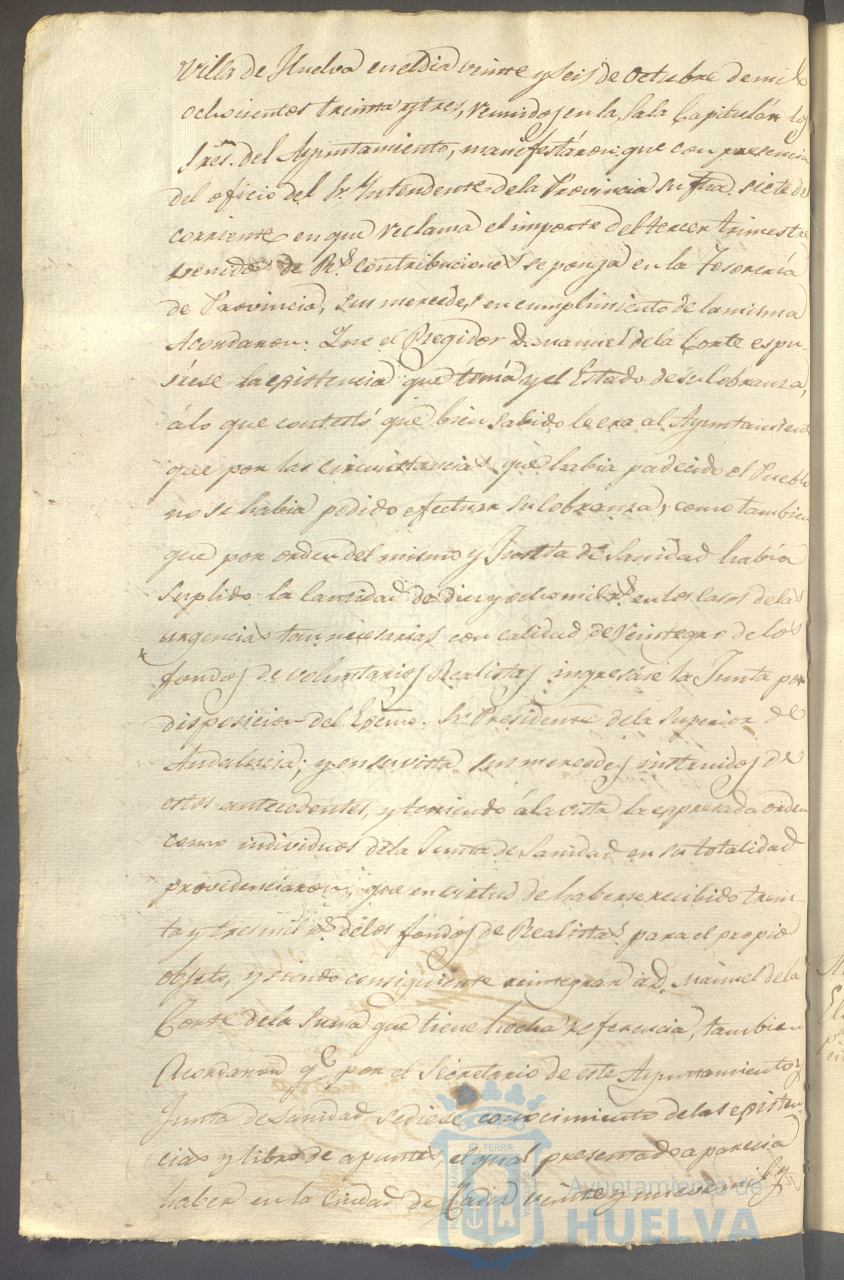 Villa de Huelva en el dia veinte y seis de Octubre de mil
ochocientos treinta y tres, reunidos en la Sala Capitulár los
Sres. del Ayuntamiento, manifestáron: que con presencia
del oficio del Sr. Yntendente de la Provincia su fha. siete del
corriente en que reclama el importe del tercer trimestre
venido de Rs. contribuciones se ponga en la Tesoreria
de Provincia, sus mercedes en cumplimiento de la misma
Acordaron: Que el Regidor D. Manuel de la Corte espu-
siese la existencia que tenia y el Estado de su Cobranza,
á lo que contestó que bien sabido le era al Ayuntamiento
que por las circunstancias que habia padecido el Pueblo
no se habia podido efectuar su cobranza, como tambien
que por orden del mismo y Junta de Sanidad habia
suplido la cantidad de diez y ocho mil rs. en los casos de las
urgencias tan necesarias con calidad de reintegro de los
fondos de voluntarios Realistas ingresáse la Junta por
disposicion del Exmo. Sr. Presidente de la Superior de
Andalucia; y en su vista sus mercedes instruidos de
estos antecedentes, y teniendo á la vista la espresada orden
como individuos de la Junta de Sanidad en su totalidad
providenciaron, que en virtud de haberse recibido trein-
ta y tres mil rs. de los fondos de Realistas para el propio
objeto, y siendo consiguiente reintegrar á D. Manuel de la
Corte de la Suma que tiene hecha referencia, tambien
Acordaron qe. por el Secretario de este Ayuntamiento y
Junta de Sanidad se diese conocimiento de las existen-
cias y libro de apuntes, el qual presentado aparecia
haber en la Ciudad de Cadiz veinte y nueve mil
Ayuntamiento de
HUELVA